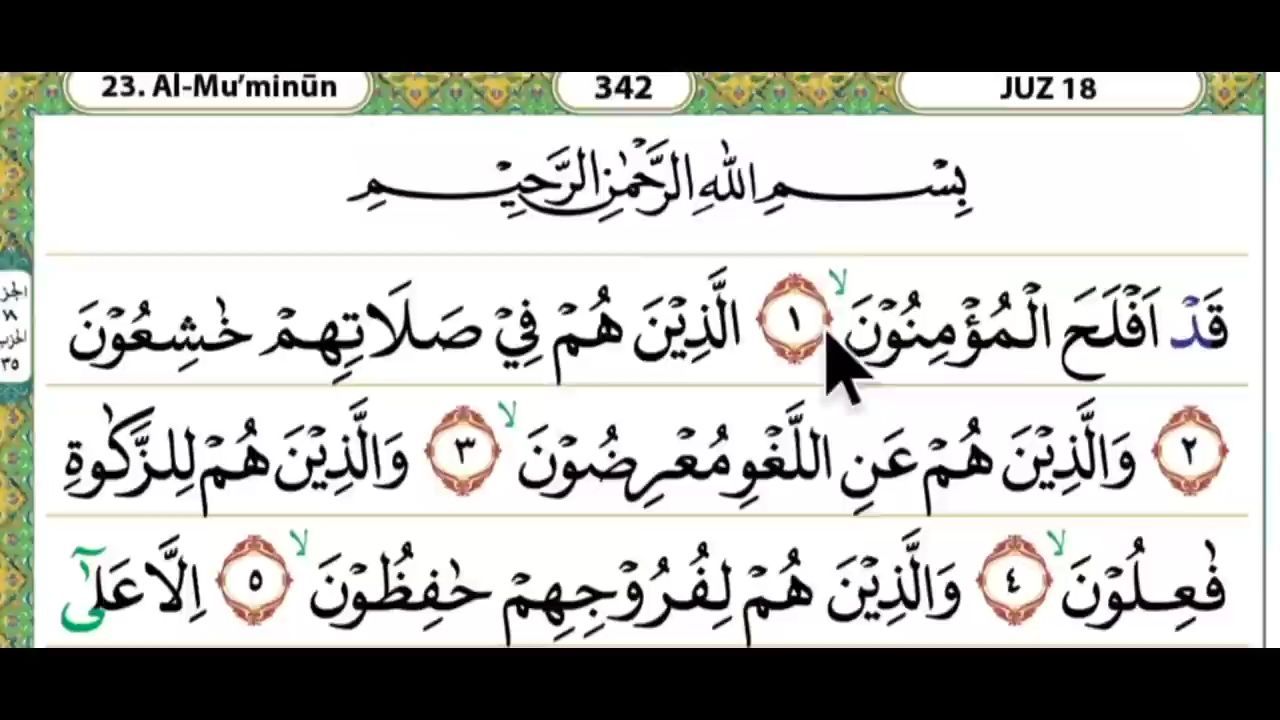 23. Al-Mu’minūn 342 JUZ 18
بِسْمِ اللّٰهِ الرَّحْمٰنِ الرَّحِيْمِ
قَدْ اَفْلَحَ الْمُؤْمِنُوْنَ ۙ ١ الَّذِيْنَ هُمْ فِيْ صَلَاتِهِمْ خٰشِعُوْنَ
٢ وَالَّذِيْنَ هُمْ عَنِ اللَّغْوِ مُعْرِضُوْنَ ۙ ٣ وَالَّذِيْنَ هُمْ لِلزَّكٰوةِ
فٰعِلُوْنَ ۙ ٤ وَالَّذِيْنَ هُمْ لِفُرُوْجِهِمْ حٰفِظُوْنَ ۙ ٥ اِلَّا عَلٰٓى
١٨
٣٥